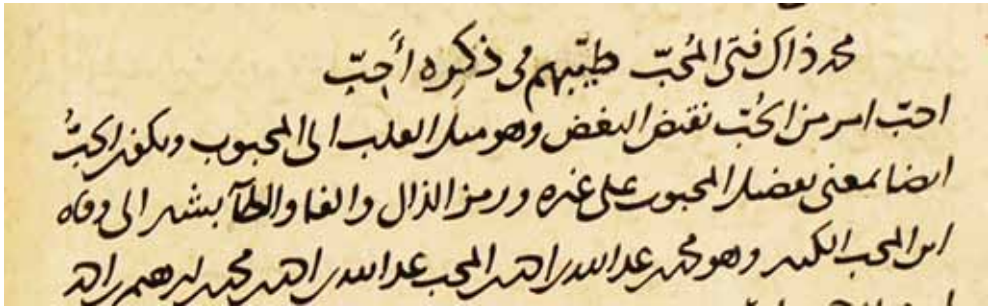 محمد ذاك فتى المُحبّ طيّبهم في ذكره أَحِبّ
احبّ امر من الحُبّ نقيض البغض وهو ميل القلب الى المحبوب ويكون الحُبّ
ايضا بمعنى تفضيل المحبوب على غيره ورمز الذال والفا والطآ يشير الى وفاه
ابن المحب الكبير وهو محمد بن عبد الله بن احمد بن المحب عبد الله بن احمد بن محمد بن ابرهيم بن احمد